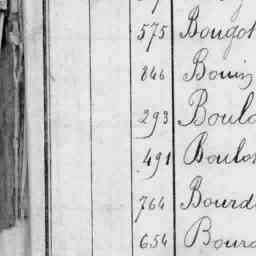 575 Bougot
846 Bouin
293 Boulo
491 Boulo
764 Bourd
654 Bourd